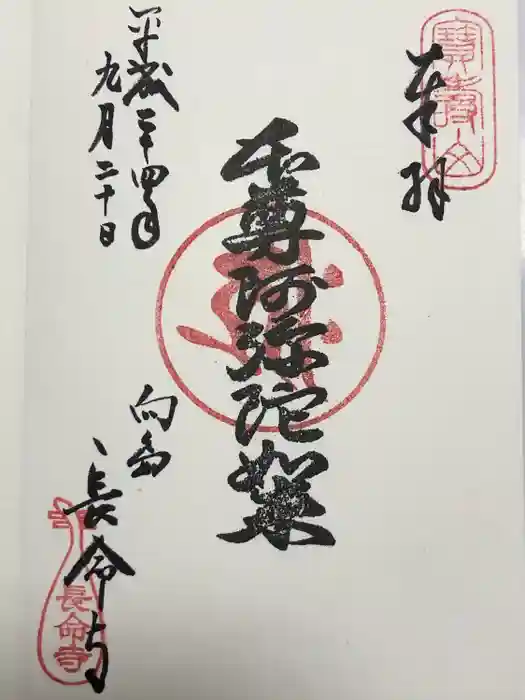 寳壽山
奉拝
本尊阿弥陀如来
平成二十四年
九月二十日
向島
長命寺
長命寺